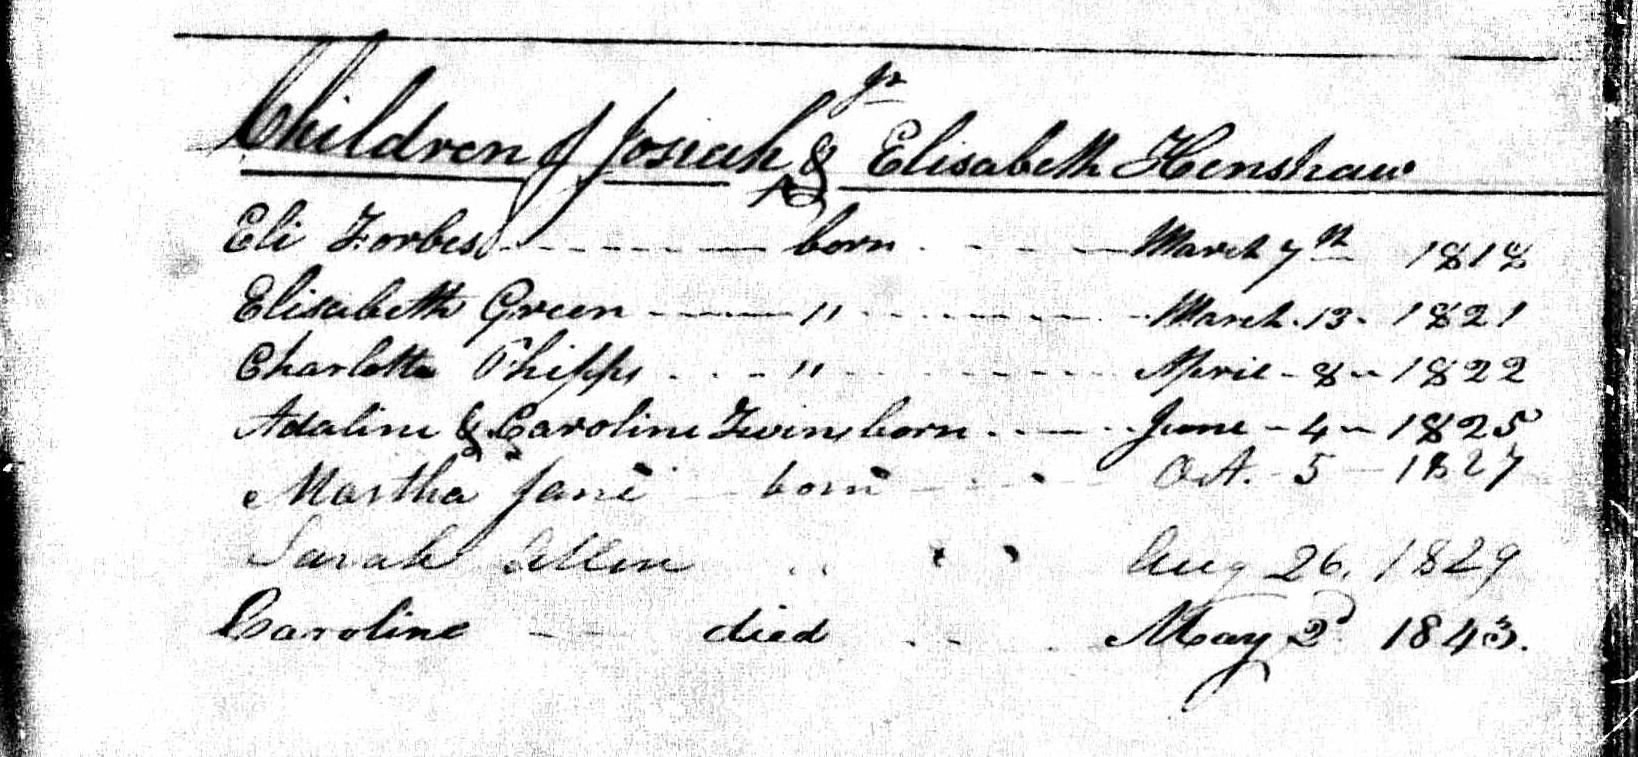 Children of Josiah Jr & Elisabeth Henshaw
Eli Forbes born March 7th 1818
Elisabeth Green " March 13 1821
Charlotte Phipps " April 8 1822
Adaline & Caroline Twins born June 4 1825
Martha Jane born Oct. 5 1827
Sarah Ellen " " Aug 26, 1829
Caroline died May 2d 1843.